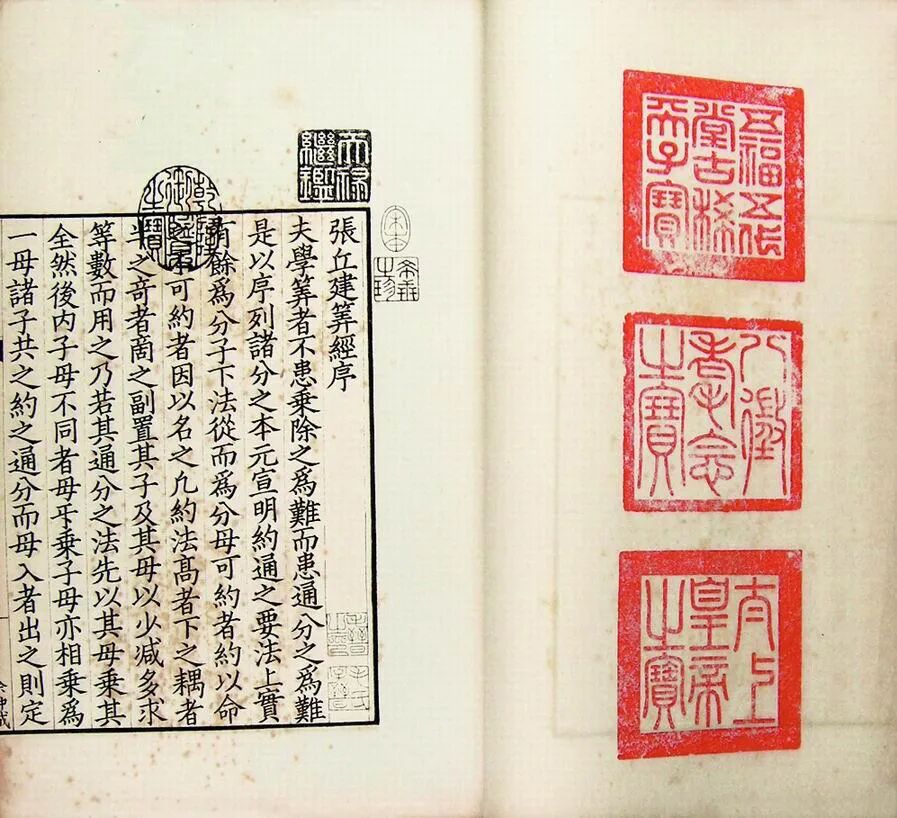 五福五代
堂古稀
天子寶
八徵
耄念
之寶
太上
皇帝
之寶
宋本
希世
之珍
天祿
繼鑑
乾隆
御覽
之寶
張丘建筭經序
夫學筭者不患乗除之爲難而患通分之爲難
是以序列諸分之本元宣明約通之要法上實
有餘爲分子下法從而爲分母可約者約以命
不可約者因以名之凡約法高者下之耦者
半之奇者啇之副置其子及其母以少减多求
等數而用之乃若其通分之法先以其母乗其
全然後内子母不同者母㸦乗子母亦相乗爲
一母諸子共之約之通分而母入者出之則定